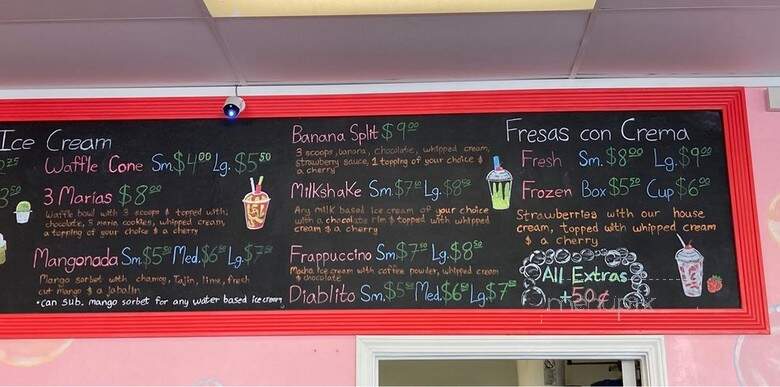 Ice Cream
Waffle Cone Sm. $4.00 Lg. $5.50
3 Marias $8.00
Waffle bowl with 3 scoops & topped with:
chocolate, 3 maria cookies, whipped cream,
a topping of your choice & a cherry
Mangonada Sm. $5.50 Med. $6.50 Lg. $7.50
Mango sorbet with chamoy, Tajin, lime, fresh
cut mango & a jabalin
*can sub. mango sorbet for any water based ice cream
Banana Split $9.00
3 scoops, banana, chocolate, whipped cream,
strawberry sauce, 1 topping of your choice &
a cherry
Milkshake Sm. $7.50 Lg. $8.50
Any milk based ice cream of your choice
with a chocolate rim & topped with whipped
cream & a cherry
Frappuccino Sm. $7.50 Lg. $8.50
Mocha ice cream with coffee powder, whipped cream
& chocolate
Diablito Sm. $5.50 Med. $6.50 Lg. $7.50
Fresas con Crema
Fresh Sm. $8.00 Lg. $9.00
Frozen Box $5.50 Cup $6.00
Strawberries with our house
cream, topped with whipped cream
& a cherry
All Extras
+50¢
menupix